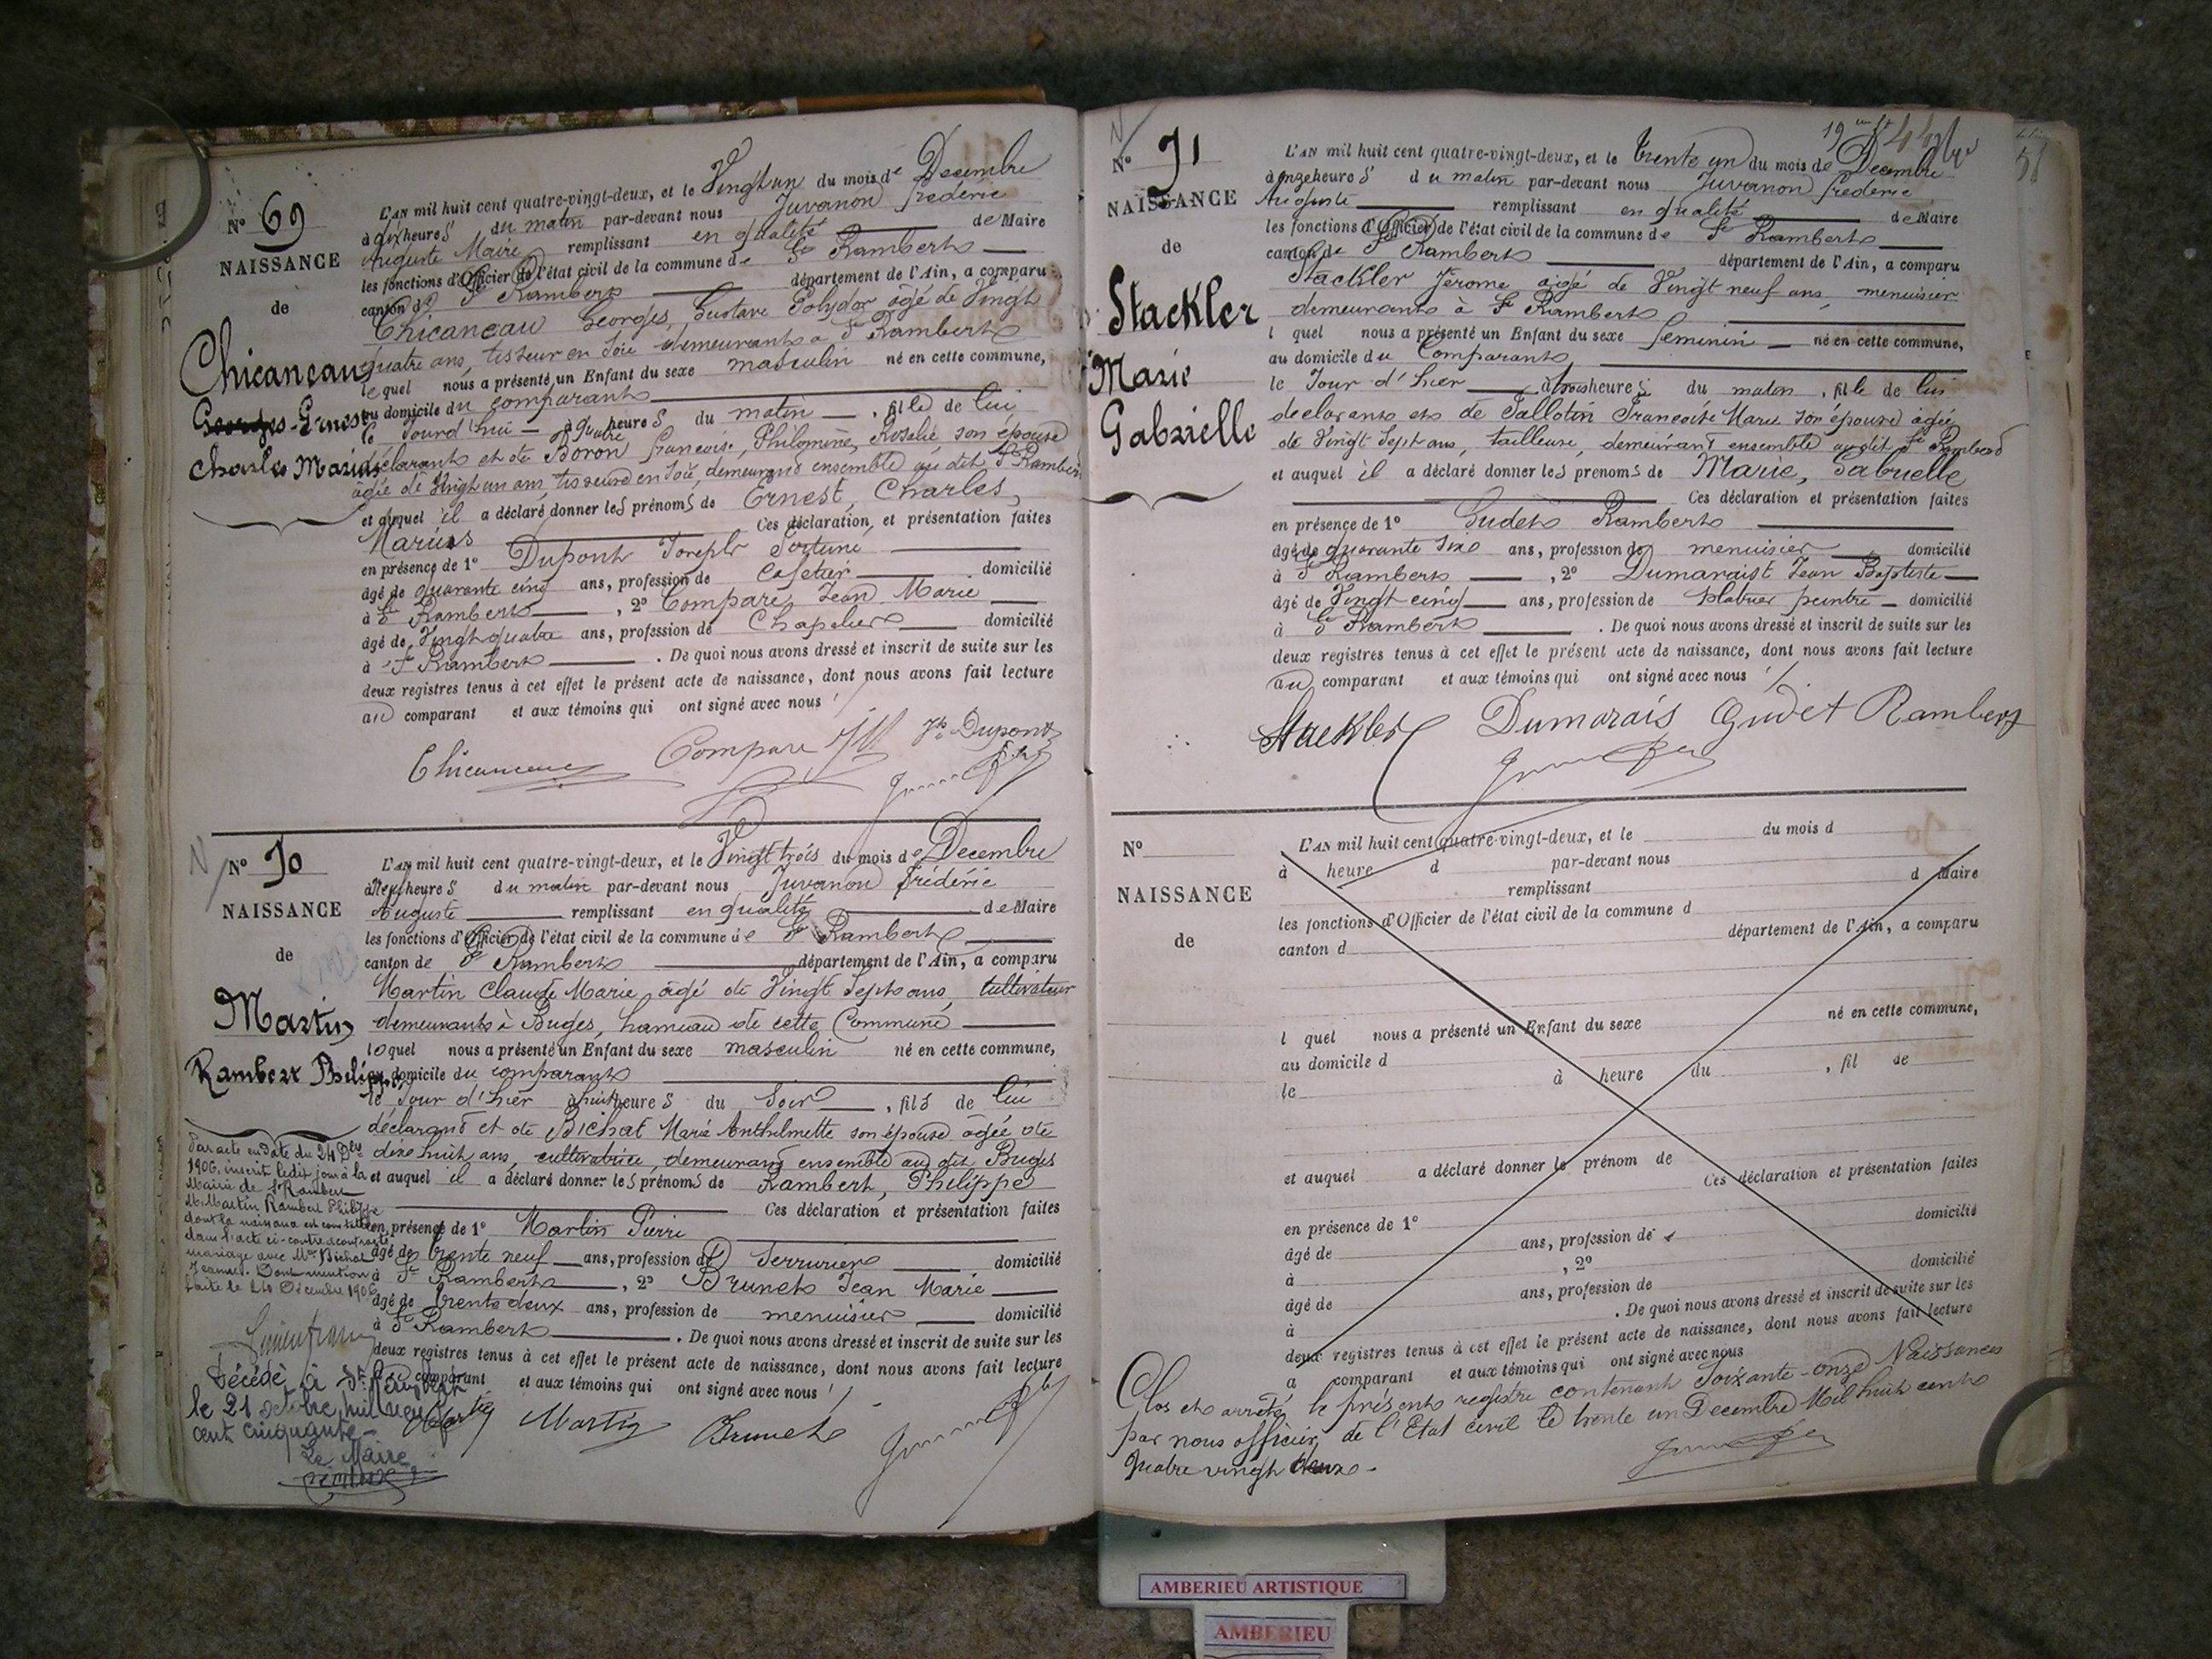 N° 69
NAISSANCE
de
Chicaneau
Georges Ernest
Charles Marius
L'AN mil huit cent quatre-vingt-deux, et le Vingt un du mois de Decembre
à dix heures du matin par-devant nous Juvanon frederic
Auguste Maire remplissant en qualité de Maire
les fonctions d'Officier de l'état civil de la commune de St Rambert
canton de St Rambert département de l'Ain, a comparu
Chicaneau Georges, Gustave Polydor âgé de Vingt
quatre ans, tisseur en Soie demeurant à St Rambert
lequel nous a présenté un Enfant du sexe masculin né en cette commune,
au domicile du comparant
le Jourd'hui à quatre heures du matin, fils de lui
déclarant et de Boron francoise, Philomène, Rosalie, son épouse
âgée de Vingt un ans, tisseuse en Soie, demeurant ensemble au dit St Rambert
et auquel il a déclaré donner les prénoms de Ernest, Charles,
Marius Ces déclaration, et présentation faites
en présence de 1° Dupont Joseph Fortuné
âgé de quarante cinq ans, profession de Cafetier domicilié
à St Rambert, 2° Compare, Jean Marie
âgé de Vingt quatre ans, profession de Chapelier domicilié
à St Rambert. De quoi nous avons dressé et inscrit de suite sur les
deux registres tenus à cet effet le présent acte de naissance, dont nous avons fait lecture
au comparant et aux témoins qui ont signé avec nous !
Chicaneau Compare JM Jh Dupont
N
N° 70
NAISSANCE
de
Martin
Rambert Philippe
L'AN mil huit cent quatre-vingt-deux, et le Vingt trois du mois de Decembre
à Neuf heures du matin par-devant nous Juvanon frédéric
Auguste remplissant en qualité de Maire
les fonctions d'Officier de l'état civil de la commune de St Rambert
canton de St Rambert département de l'Ain, a comparu
Martin Claude Marie, âgé de Vingt Sept ans, Cultivateur
demeurant à Buges, hameau de cette Commune
lequel nous a présenté un Enfant du sexe masculin né en cette commune,
au domicile du comparant
le Jour d'hier à huit heures du Soir, fils de lui
déclarant et de Bichat Marie Anthelmette son épouse âgée de
dixe huit ans, cultivatrice, demeurant ensemble au dit Buges
et auquel il a déclaré donner les prénoms de Rambert, Philippe
Ces déclaration et présentation faites
en présence de 1° Martin Pierre
âgé de trente neuf ans, profession de Serrurier domicilié
à St Rambert, 2° Brunet Jean Marie
âgé de trente deux ans, profession de menuisier domicilié
à St Rambert. De quoi nous avons dressé et inscrit de suite sur les
deux registres tenus à cet effet le présent acte de naissance, dont nous avons fait lecture
au comparant et aux témoins qui ont signé avec nous !
Martin Martin Brunet
Par acte en date du 24 Dbre
1906, inscrit ledit jour à la
Mairie de St Rambert
M. Martin Rambert Philippe
dont la naissance est constatée
dans l'acte ci-contre a contracté
mariage avec Mlle Bichat
Jeanne. Dont mention
faite le 24 Décembre 1906
Décédé à St Rambert
le 21 octobre mil neuf
cent cinquante
Le Maire
N
N° 71
NAISSANCE
de
Stackler
Marie
Gabrielle
L'AN mil huit cent quatre-vingt-deux, et le trente un du mois de Decembre
à onze heures du matin par-devant nous Juvanon frederic
Auguste remplissant en qualité de Maire
les fonctions d'Officier de l'état civil de la commune de St Rambert
canton de St Rambert département de l'Ain, a comparu
Stackler Jérome âgé de Vingt neuf ans, menuisier
demeurant à St Rambert
l quel nous a présenté un Enfant du sexe feminin né en cette commune,
au domicile du Comparant
le Jour d'hier à trois heures du matin, fille de lui
declarant et de Tallotin Francoise Marie son épouse âgée
de Vingt Sept ans, tailleuse, demeurant ensemble au dit St Rambert
et auquel il a déclaré donner les prenoms de Marie, Gabrielle
Ces déclaration et présentation faites
en présence de 1° Gudet Rambert
âgé de quarante Six ans, profession de menuisier domicilié
à St Rambert, 2° Dumaraist Jean Baptiste
âgé de Vingt cinq ans, profession de Platrier peintre domicilié
à St Rambert. De quoi nous avons dressé et inscrit de suite sur les
deux registres tenus à cet effet le présent acte de naissance, dont nous avons fait lecture
au comparant et aux témoins qui ont signé avec nous !
Stackler Dumarais Gudet Rambert
N°
NAISSANCE
de
L'AN mil huit cent quatre-vingt-deux, et le du mois d
à heure d par-devant nous
remplissant d Maire
les fonctions d'Officier de l'état civil de la commune d
canton d département de l'Ain, a comparu
l quel nous a présenté un Enfant du sexe né en cette commune,
au domicile d
le à heure du , fil de
et auquel a déclaré donner le prénom de
Ces déclaration et présentation faites
en présence de 1°
âgé de ans, profession de domicilié
à , 2°
âgé de ans, profession de domicilié
à . De quoi nous avons dressé et inscrit de suite sur les
deux registres tenus à cet effet le présent acte de naissance, dont nous avons fait lecture
a comparant et aux témoins qui ont signé avec nous
Clos et arrêté le présent registre contenant Soixante-onze Naissances
par nous officier de l'Etat civil le trente un Decembre Mil huit cent
quatre vingt deux.
AMBERIEU ARTISTIQUE
AMBERIEU